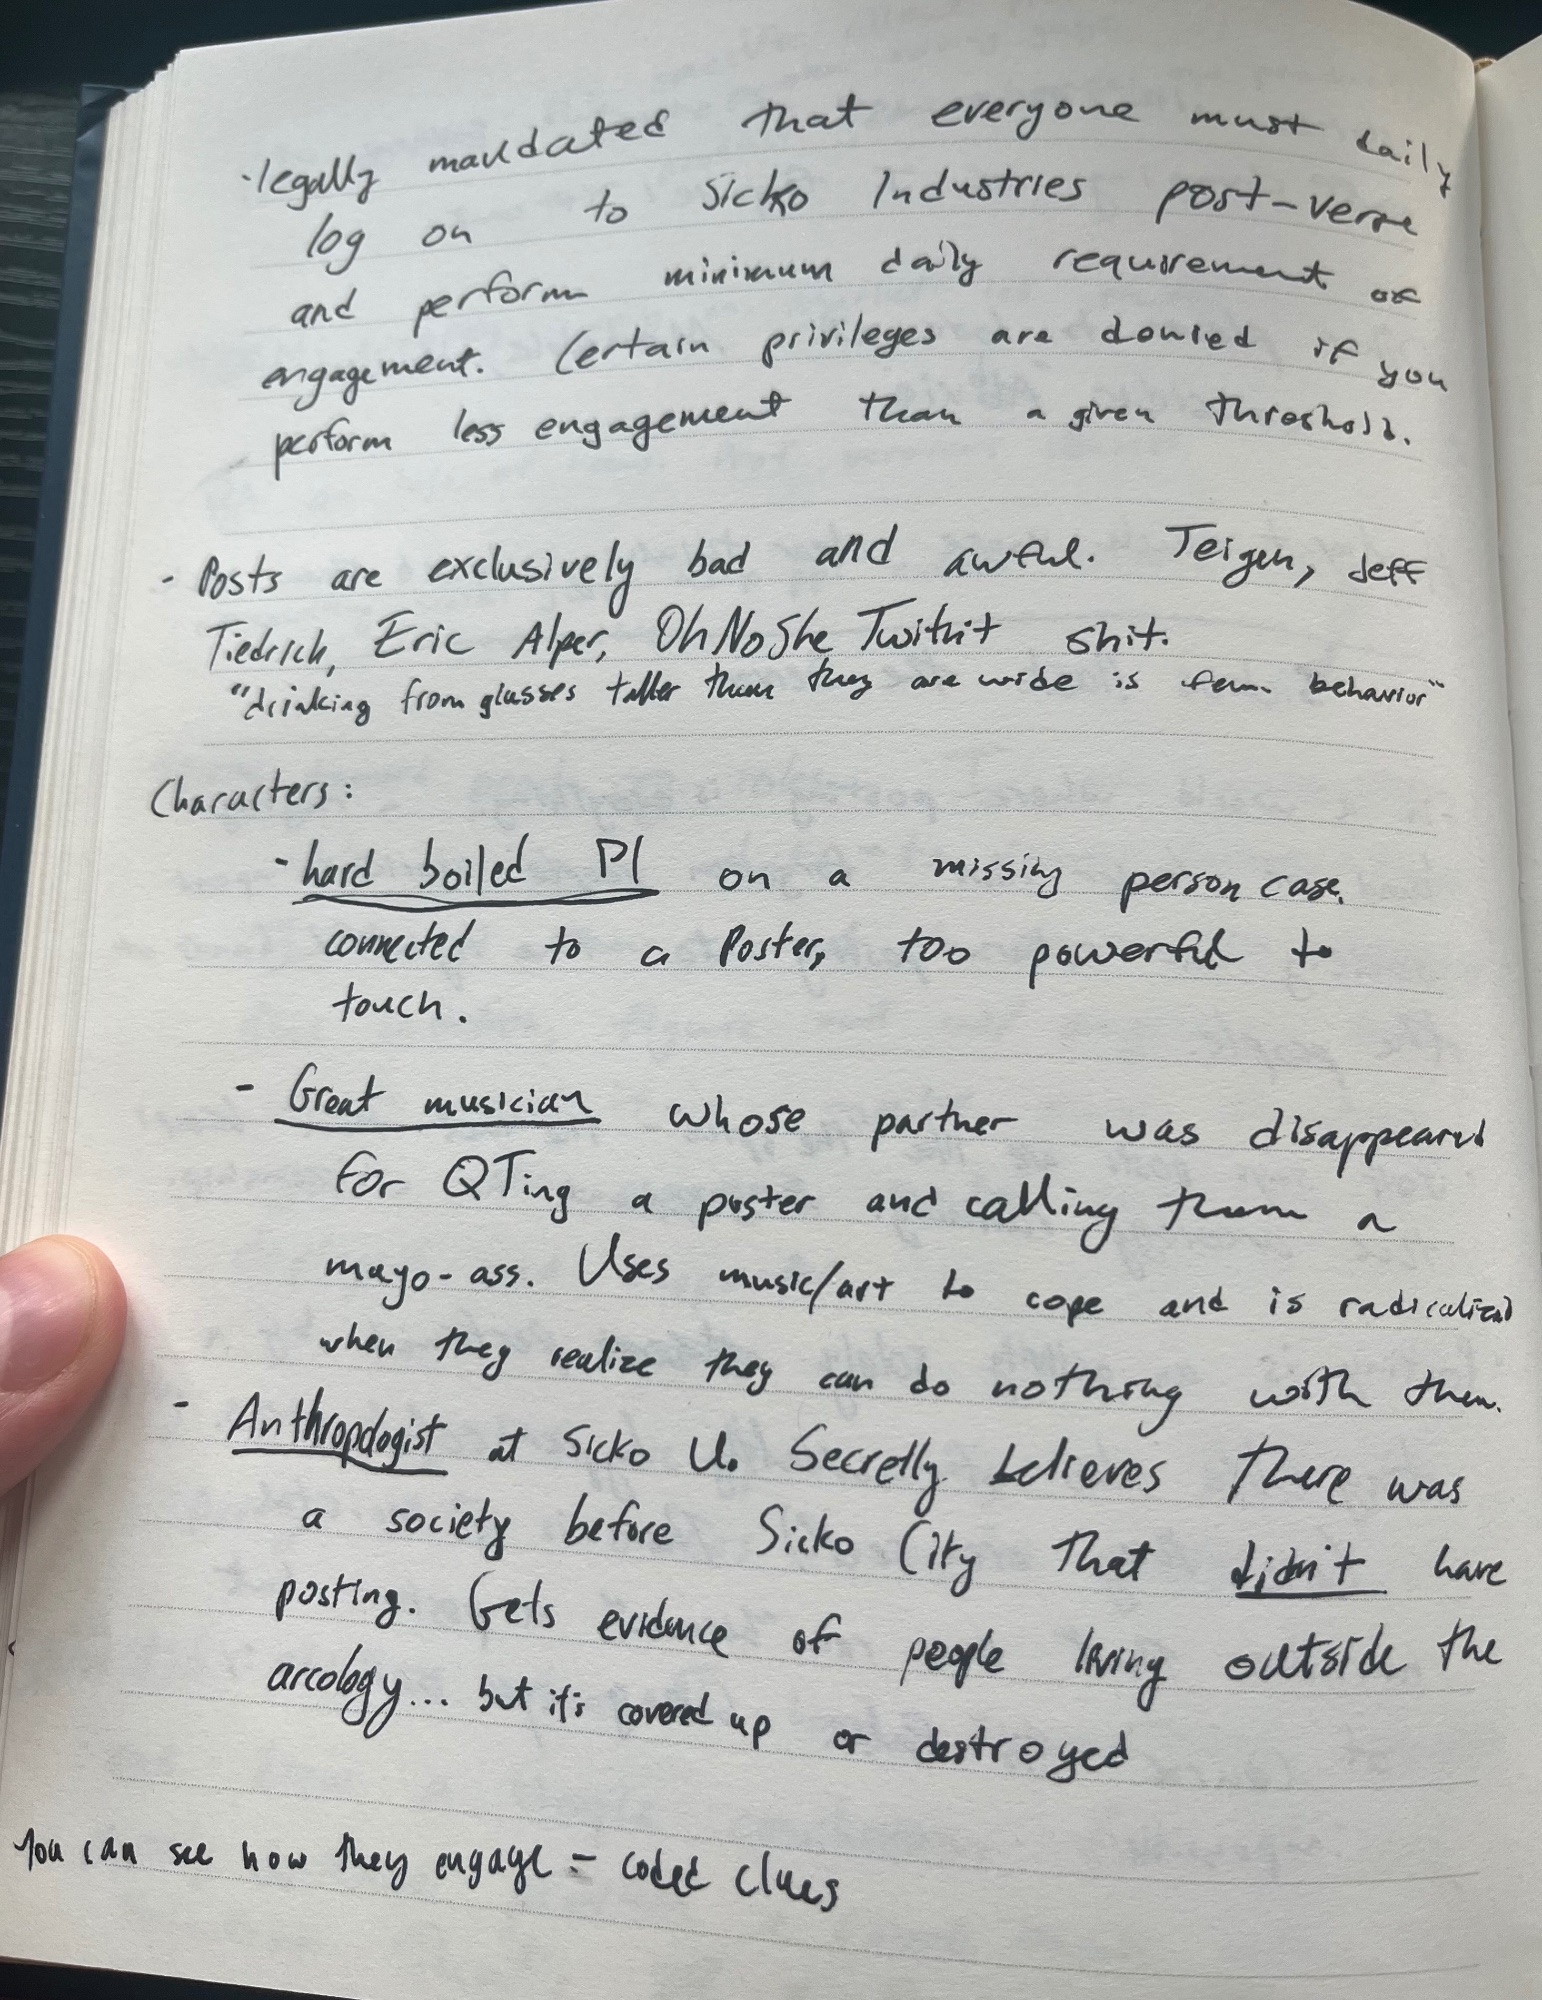 · legally mandated that everyone must daily
log on to Sicko Industries post-verse
and perform minimum daily requirement of
engagement. Certain privileges are denied if you
perform less engagement than a given threshold.
- Posts are exclusively bad and awful. Teigen, Jeff
Tiedrich, Eric Alper, OhNoSheTwitnt shit.
"drinking from glasses taller than they are wide is fem. behavior"
Characters:
- hard boiled PI on a missing person case.
connected to a Poster, too powerful to
touch.
- Great musician whose partner was disappeared
for QTing a poster and calling them a
mayo-ass. Uses music/art to cope and is radicalized
when they realize they can do nothing with them.
- Anthropologist at Sicko U. Secretly believes there was
a society before Sicko City that didn't have
posting. Gets evidence of people living outside the
arcology... but it's covered up or destroyed
You can see how they engage - coded clues